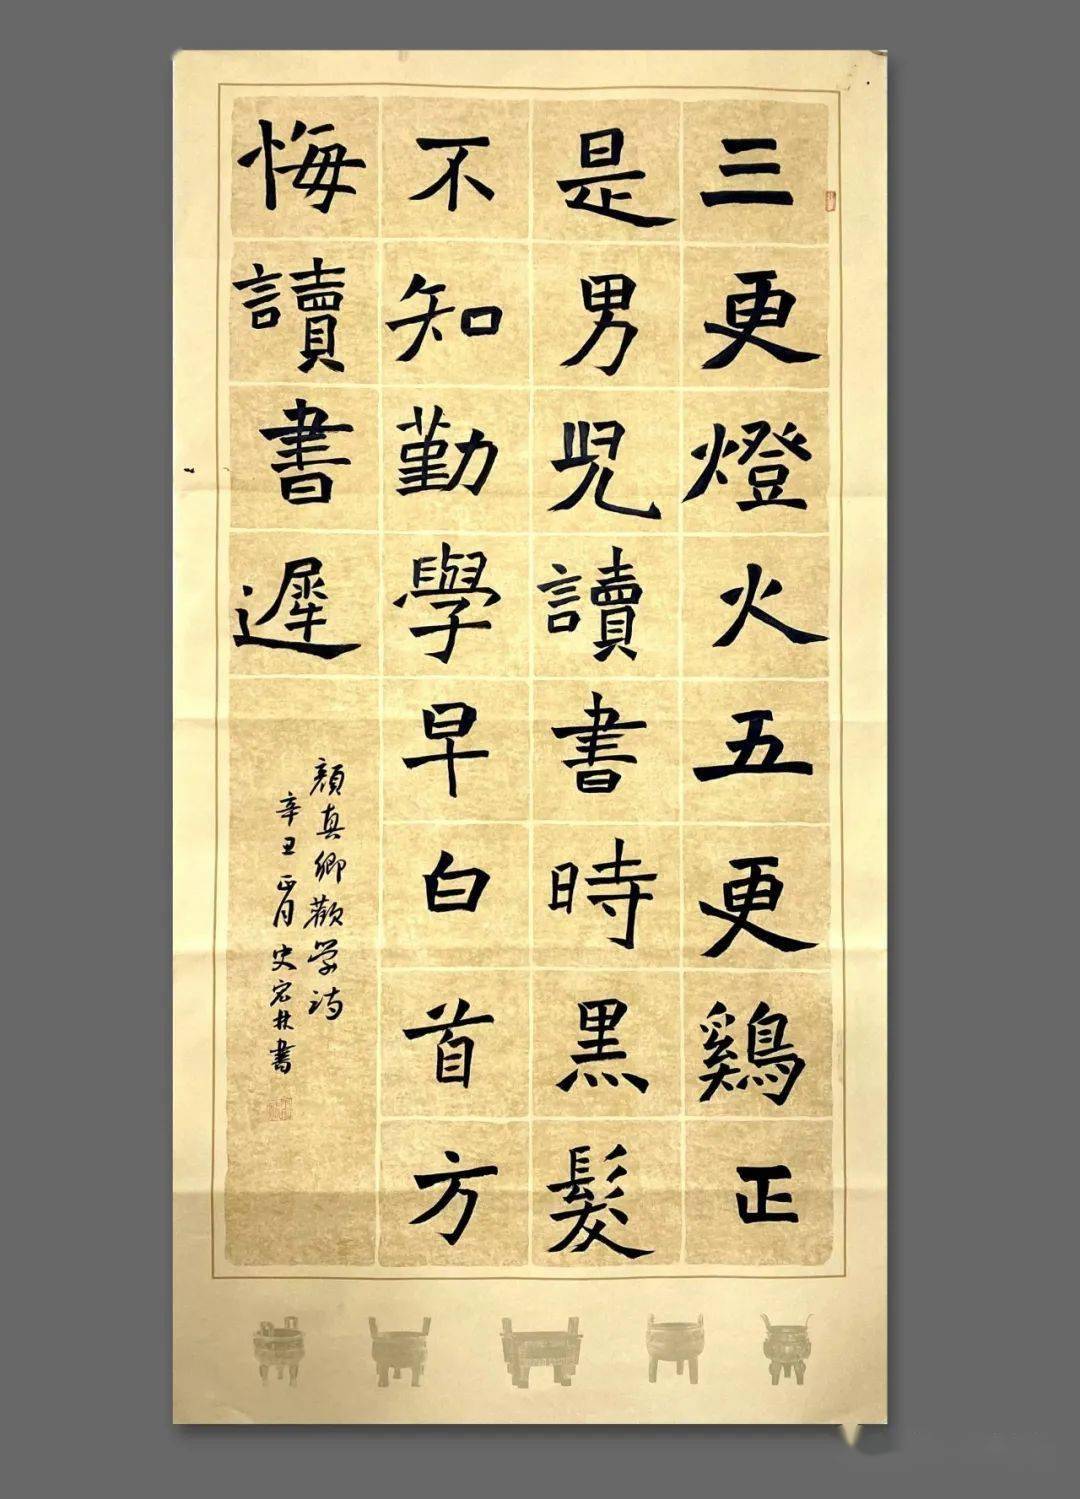 三更燈火五更鷄正
是男兒讀書時黑髮
不知勤學早白首方
悔讀書遲
顏真卿勸学詩
辛丑正月史宏林書